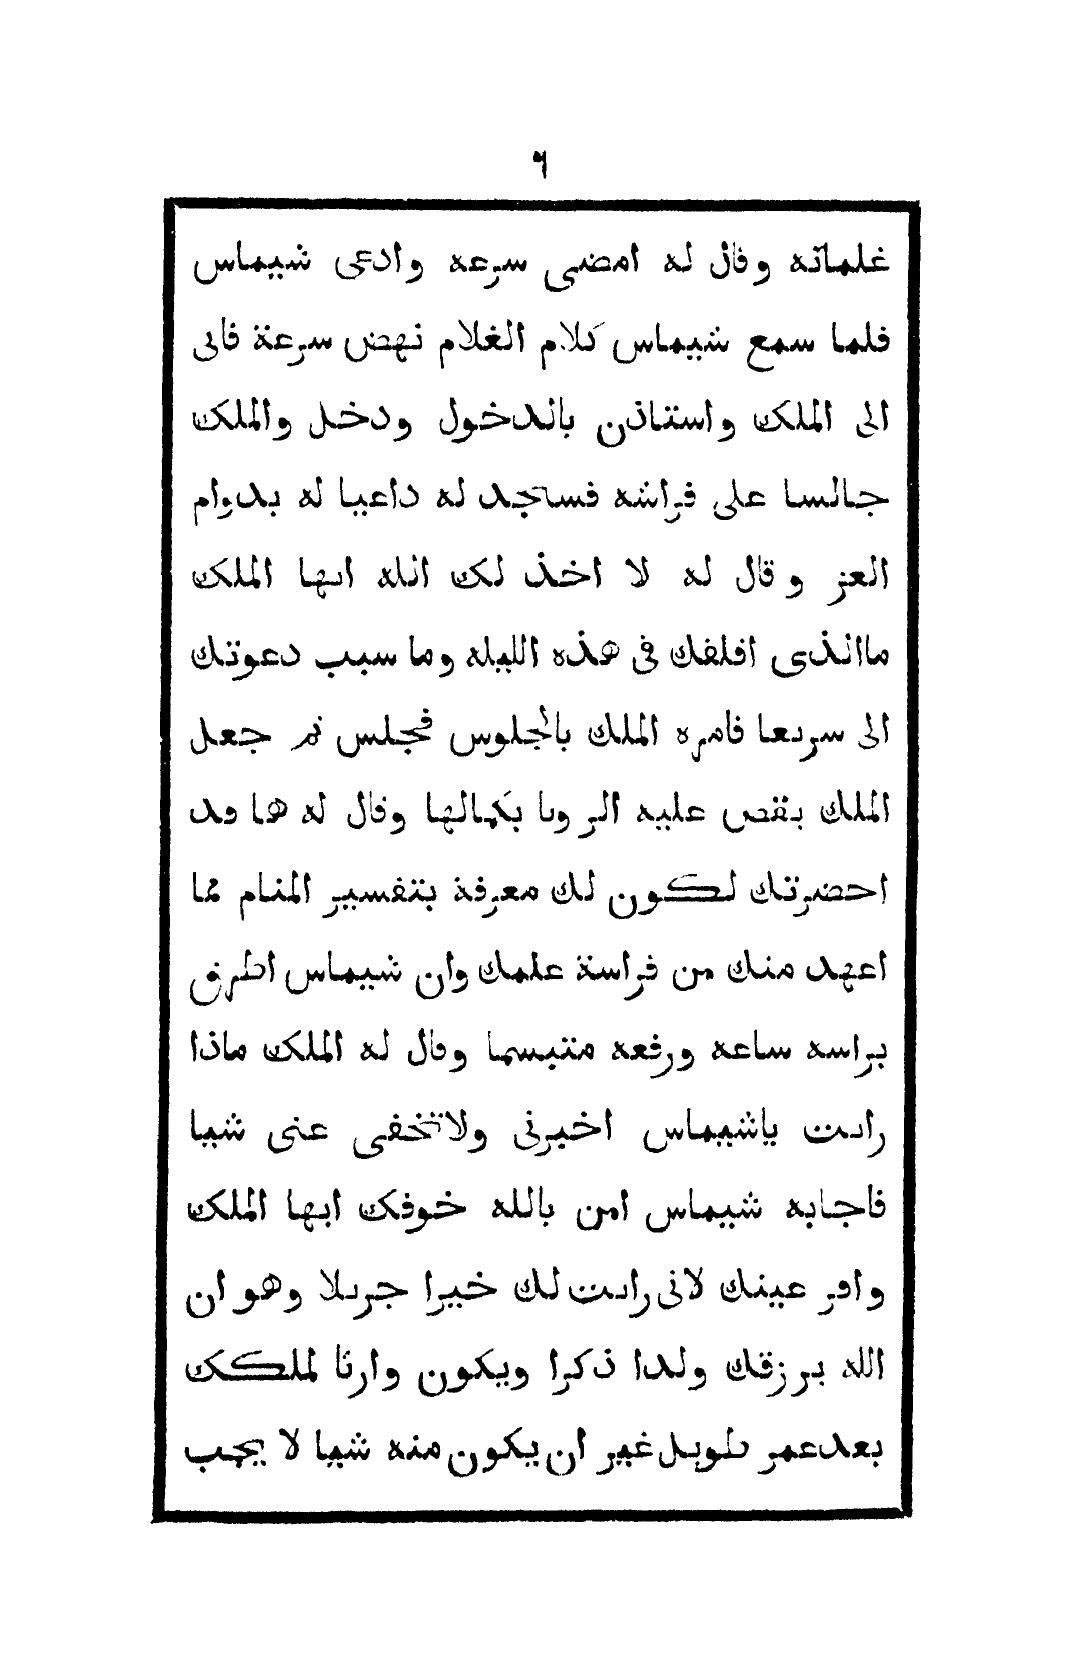 ٦
غلمانه وقال له امضى سرعه وادعى شيماس
فلما سمع شيماس كلام الغلام نهض سرعة فاتى
الى الملك واستاذن بالدخول ودخل والملك
جالسا على فراشه فساجد له داعيا له بدوام
العز وقال له لا اخذ لك الله ايها الملك
ماالذى اقلقك فى هذه الليله وما سبب دعوتك
الى سريعا فامره الملك بالجلوس فجلس ثم جعل
الملك يقص عليه الرويا بكمالها وقال له ها قد
احضرتك لكون لك معرفة بتفسير المنام مما
اعهد منك من فراسة علمك وان شيماس اطرق
براسه ساعه ورفعه متبسما وقال له الملك ماذا
رايت ياشيماس اخبرنى ولاتخفى عنى شيا
فاجابه شيماس امن بالله خوفك ايها الملك
واقر عينك لانى رايت لك خيرا جزيلا وهو ان
الله يرزقك ولدا ذكرا ويكون وارثا لملكك
بعدعمر طويل غير ان يكون منه شيا لا يجب